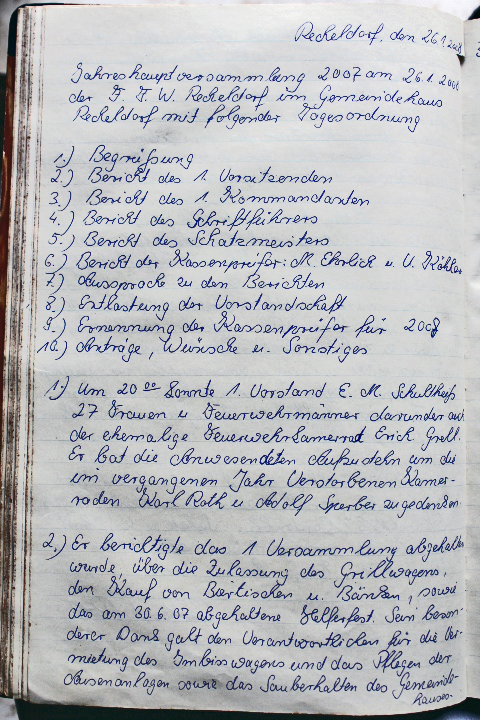 Recheldorf, den 26.1.2008
Jahreshauptversammlung 2007 am 26.1.2008
der F. F. W. Recheldorf im Gemeindehaus
Recheldorf mit folgender Tagesordnung
1.) Begrüßung
2.) Bericht des 1. Vorsitzenden
3.) Bericht des 1. Kommandanten
4.) Bericht des Schriftführers
5.) Bericht des Schatzmeisters
6.) Bericht der Kassenprüfer: M. Ehrlich u. U. Köhler
7.) Aussprache zu den Berichten
8.) Entlastung der Vorstandschaft
9.) Ernennung der Kassenprüfer für 2008
10.) Anträge, Wünsche u. Sonstiges
1.) Um 20 00 konnte 1. Vorstand E. M. Schultheiß
27 Frauen u Feuerwehrmänner darunder auch
der ehemalige Feuerwehrkamerrat Erick Grell.
Er bat die Anwesendeten Aufzustehn um die
im vergangenen Jahr Verstorbenen Kame-
raden Karl Roth u Adolf Sperber zu gedenken.
2.) Er berichtigte das 1 Versammlung abgehalten
wurde, über die Zulassung des Grillwagens,
den Kauf von Biertischen u. Bänken, sowie
das am 30.6.07 abgehaltene Helferfest. Sein beson-
derer Dank galt den Verantwortlichen für die Ver-
mietung des Imbisswagens und das Pflegen der
Aussenanlagen sowie das Sauberhalten des Gemeinde-
hauses.